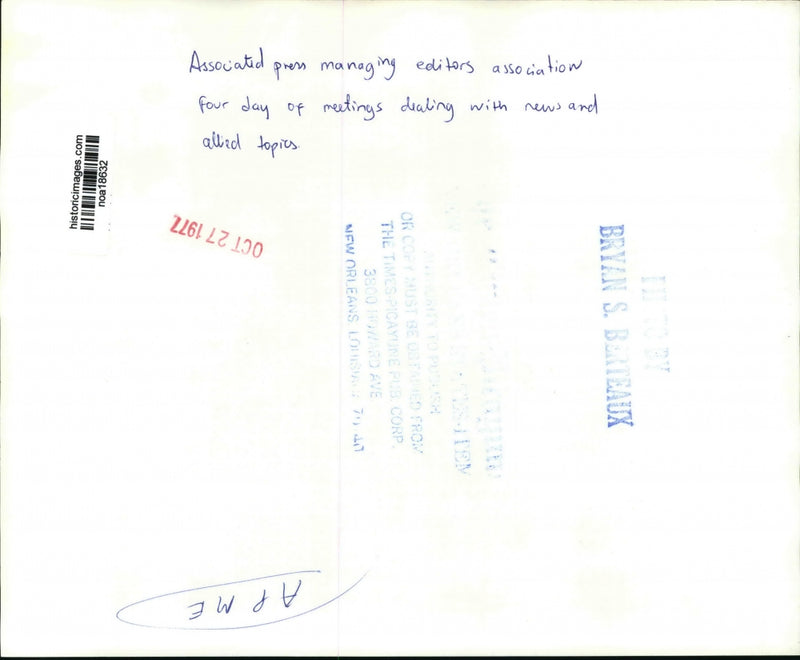 Associated press managing editors association
four day of meetings dealing with news and
allied topics
historicimages.com
noa18632
OCT 27 1977
AUTHORITY TO PUBLISH
OR COPY MUST BE OBTAINED FROM
THE TIMES-PICAYUNE PUB. CORP.
3800 HOWARD AVE
NEW ORLEANS, LOUISIANA 70140
PHOTO BY
BRYAN S. BERTEAUX
APME